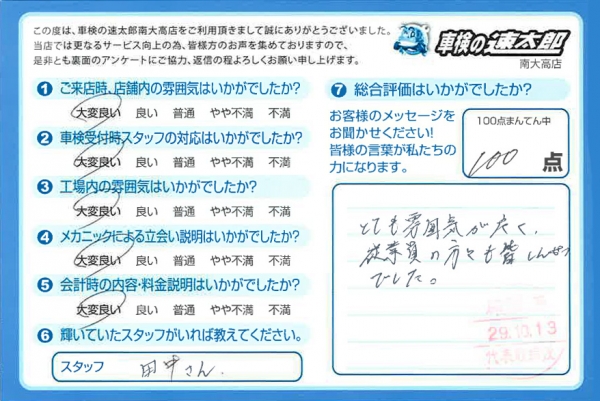 この度は、車検の速太郎南大高店をご利用頂きまして誠にありがとうございました。
当店では更なるサービス向上の為、皆様方のお声を集めておりますので、
是非とも裏面のアンケートにご協力、返信の程よろしくお願い申し上げます。
車検の速太郎
南大高店
1 ご来店時、店舗内の雰囲気はいかがでしたか?
大変良い 良い 普通 やや不満 不満
2 車検受付時スタッフの対応はいかがでしたか?
大変良い 良い 普通 やや不満 不満
3 工場内の雰囲気はいかがでしたか?
大変良い 良い 普通 やや不満 不満
4 メカニックによる立会い説明はいかがでしたか?
大変良い 良い 普通 やや不満 不満
5 会計時の内容・料金説明はいかがでしたか?
大変良い 良い 普通 やや不満 不満
6 輝いていたスタッフがいれば教えてください。
スタッフ 田中さん.
7 総合評価はいかがでしたか?
お客様のメッセージを
お聞かせください!
皆様の言葉が私たちの
力になります。
100点まんてん中
100 点
とても雰囲気が良く、
従業員の方々も皆しんせつ
でした。
29.10.13
代表取締役